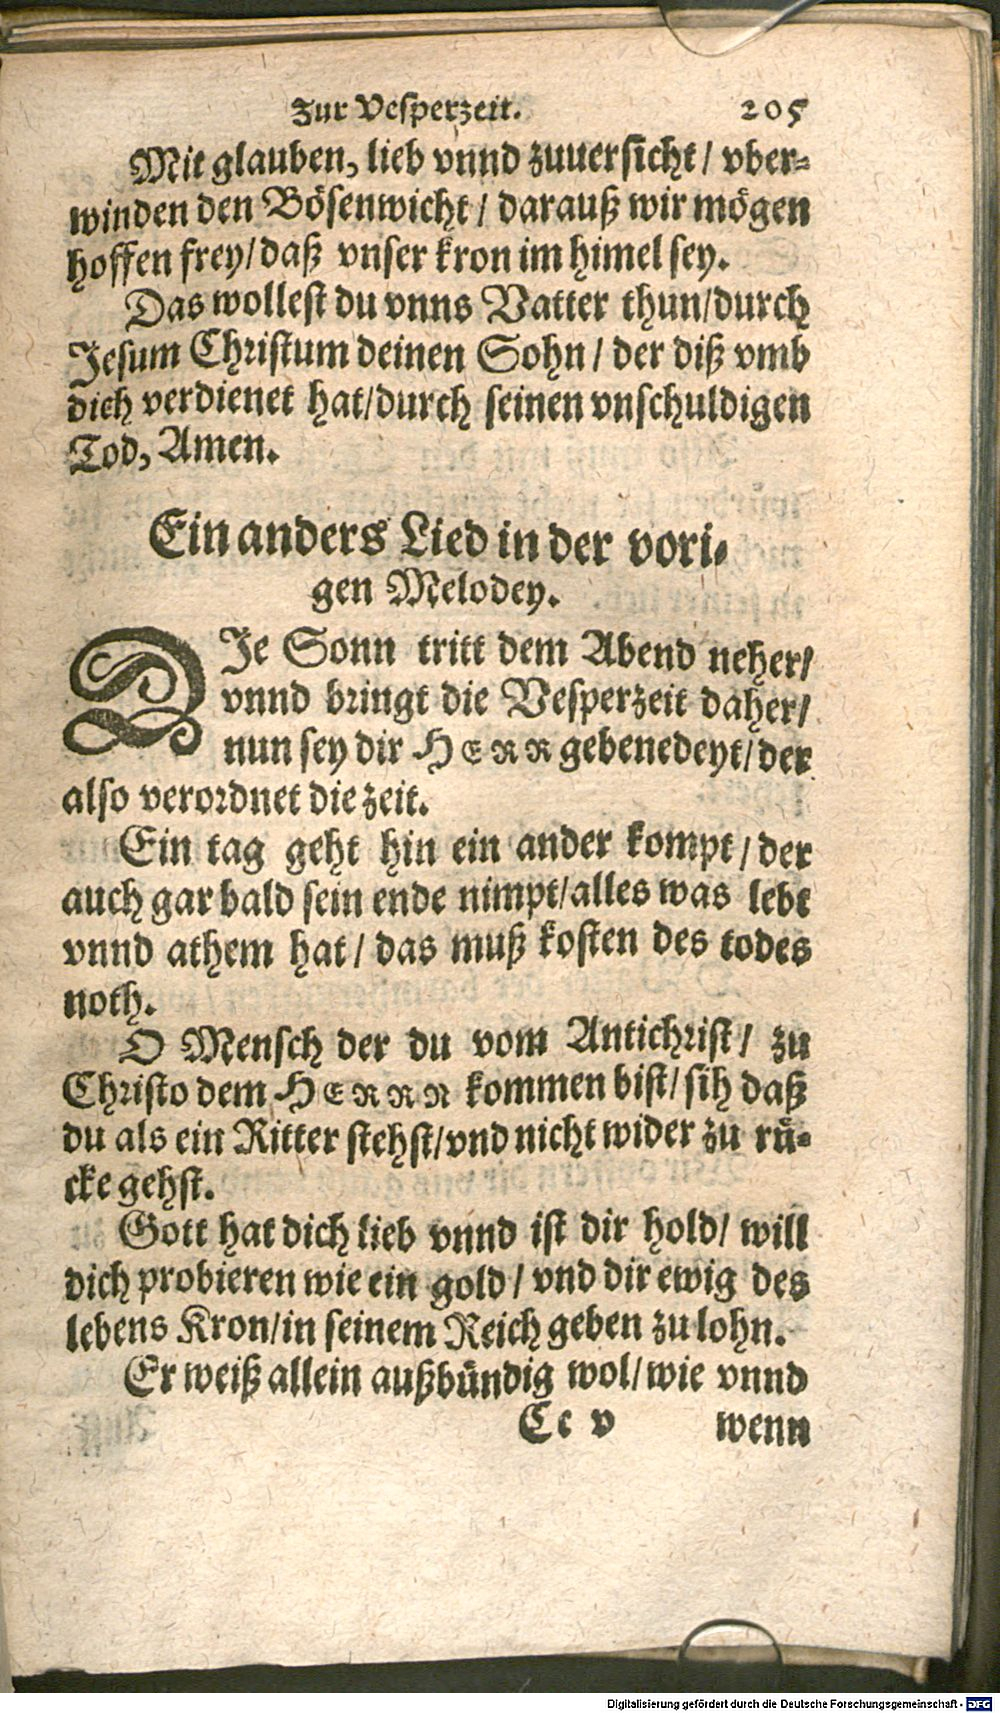 Zur Vesperzeit. 205
Mit glauben, lieb vnnd zuuersicht / vber-
winden den Bösenwicht / darauß wir mögen
hoffen frey / daß vnser kron im himel sey.
Das wollest du vnns Vatter thun / durch
Jesum Christum deinen Sohn / der diß vmb
dich verdienet hat / durch seinen vnschuldigen
Tod, Amen.
Ein anders Lied in der vori-
gen Melodey.
DJe Sonn tritt dem Abend neher /
vnnd bringt die Vesperzeit daher /
nun sey dir HERR gebenedeyt / der
also verordnet die zeit.
Ein tag geht hin ein ander kompt / der
auch gar bald sein ende nimpt / alles was lebt
vnnd athem hat / das muß kosten des todes
noth.
O Mensch der du vom Antichrist / zu
Christo dem HERRN kommen bist / sih daß
du als ein Ritter stehst / vnd nicht wider zu rü-
cke gehst.
Gott hat dich lieb vnnd ist dir hold / will
dich probieren wie ein gold / vnd dir ewig des
lebens Kron / in seinem Reich geben zu lohn.
Er weiß allein außbündig wol / wie vnnd
Cc v wenn
Digitalisierung gefördert durch die Deutsche Forschungsgemeinschaft - DFG